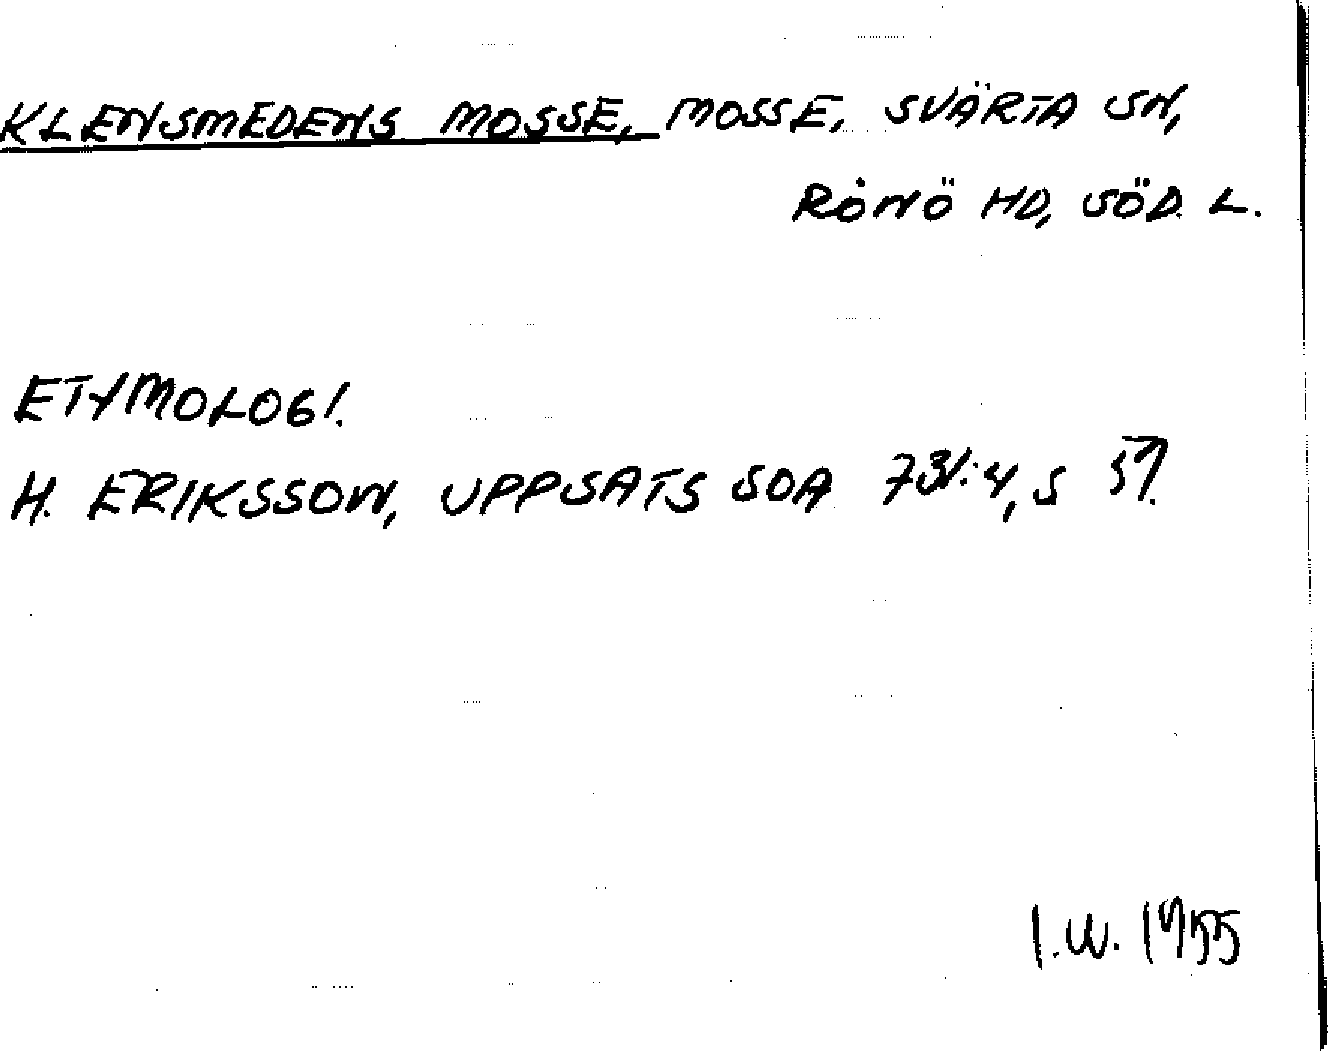 KLENSMEDENS MOSSE, MOSSE, SVÄRTA SN,
RÖNÖ HD, SÖD. L.
ETYMOLOGI.
H. ERIKSSON, UPPSATS SOA 731:4, S 59.
I.W. 1955